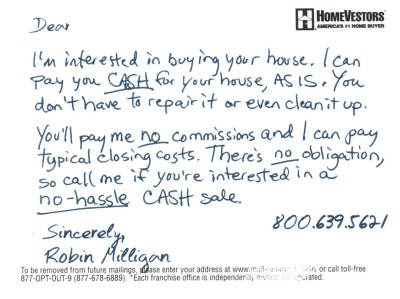 Dear
HOMEVESTORS
AMERICA'S #1 HOME BUYER
I'm interested in buying your house. I can
pay you CASH for your house, AS IS. You
don't have to repair it or even clean it up.
You'll pay me no commissions and I can pay
typical closing costs. There's no obligation,
so call me if you're interested in a
no-hassle CASH sale.
Sincerely,
800.639.5621
Robin Milligan
To be removed from future mailings, please enter your address at www. or call toll-free
877-OPT-OUT-9 (877-678-6889). *Each franchise office is independently owned operated.